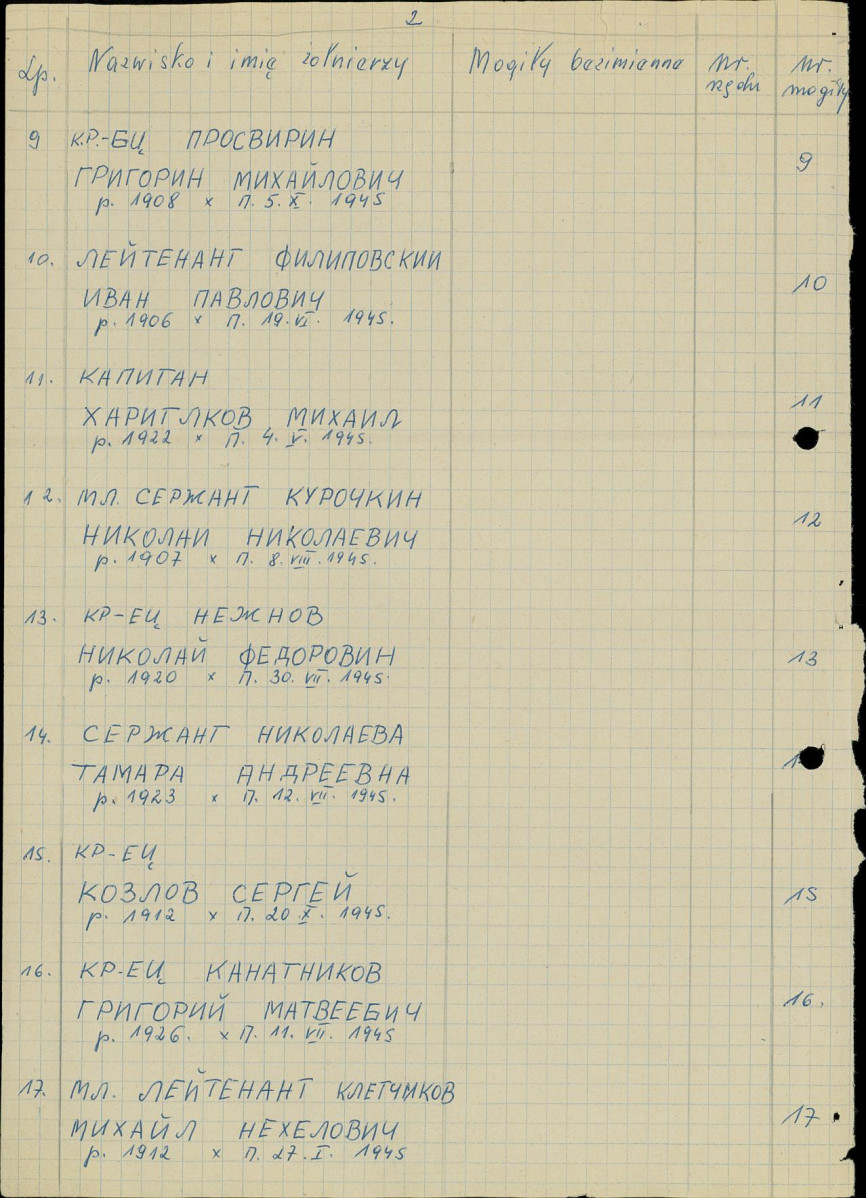 2
Lp. Nazwisko i imię żołnierzy Mogiły bezimienne Nr. rzędu Nr. mogiły
9 К.Р.-БЦ ПРОСВИРИН
ГРИГОРИН МИХАЙЛОВИЧ 9
р. 1908 x П. 5. X. 1945
10. ЛЕЙТЕНАНТ ФИЛИПОВСКИИ
ИВАН ПАВЛОВИЧ 10
р. 1906 x П. 19. VI. 1945.
11. КАПИТАН
ХАРИТЛКОВ МИХАИЛ 11
р. 1922 x П. 4. V. 1945.
12. МЛ. СЕРЖАНТ КУРОЧКИН
НИКОЛАИ НИКОЛАЕВИЧ 12
р. 1907 x П. 8. VIII. 1945.
13. КР-ЕЦ НЕЖНОВ
НИКОЛАЙ ФЕДОРОВИН 13
р. 1920 x П. 30. VII. 1945.
14. СЕРЖАНТ НИКОЛАЕВА
ТАМАРА АНДРЕЕВНА
р. 1923 x П. 12. VII. 1945.
15. КР-ЕЦ
КОЗЛОВ СЕРГЕЙ 15
р. 1912 x П. 20. X. 1945.
16. КР-ЕЦ КАНАТНИКОВ
ГРИГОРИЙ МАТВЕЕБИЧ 16.
р. 1926. x П. 11. VII. 1945
17. МЛ. ЛЕЙТЕНАНТ
МИХАЙЛ НЕХЕЛОВИЧ 17
р. 1912 x П. 27. I. 1945